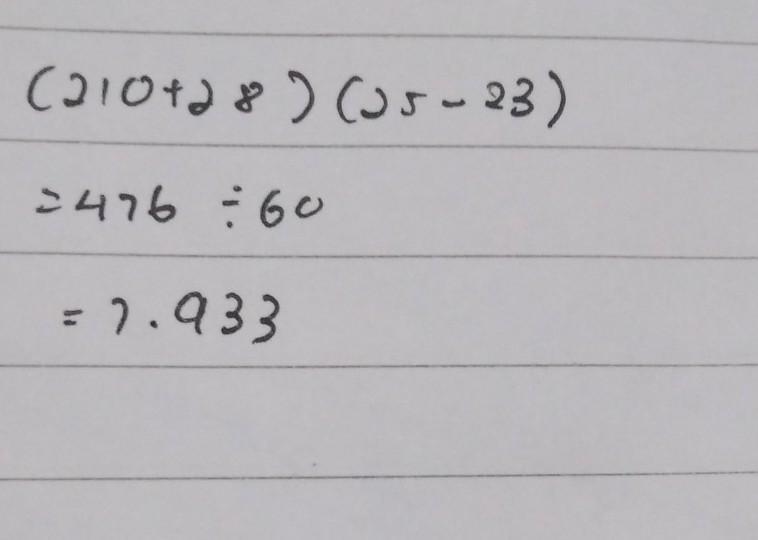 (210+28)(25-23)
=476 ÷60
=7.933